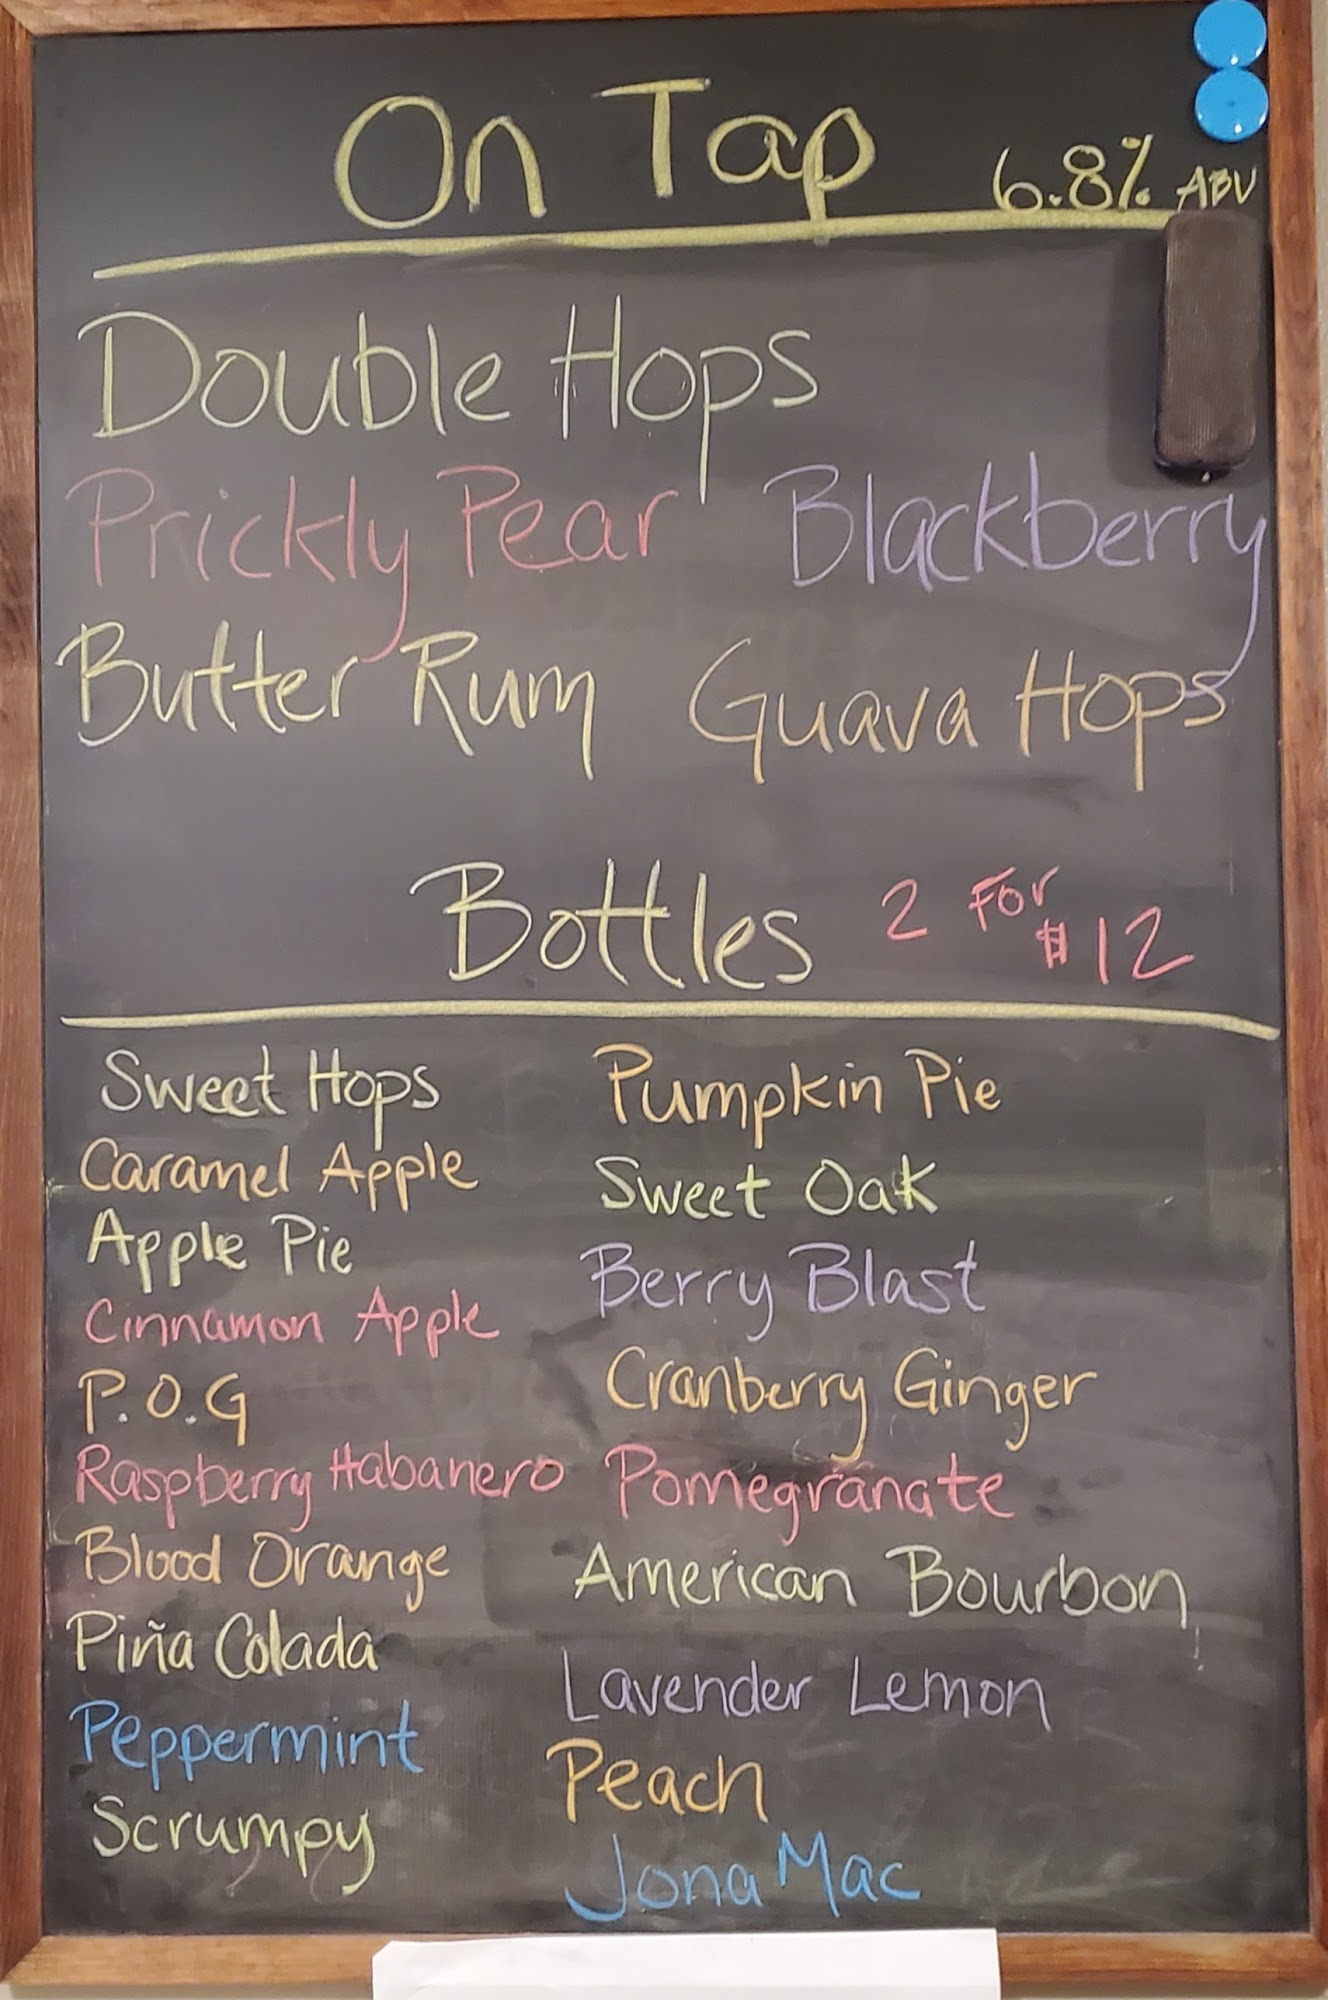 On Tap 6.8% ABV
Double Hops
Prickly Pear Blackberry
Butter Rum Guava Hops
Bottles 2 FOR $12
Sweet Hops
Caramel Apple
Apple Pie
Cinnamon Apple
P.O.G
Raspberry Habanero
Blood Orange
Piña Colada
Peppermint
Scrumpy
Pumpkin Pie
Sweet Oak
Berry Blast
Cranberry Ginger
Pomegranate
American Bourbon
Lavender Lemon
Peach
Jona Mac